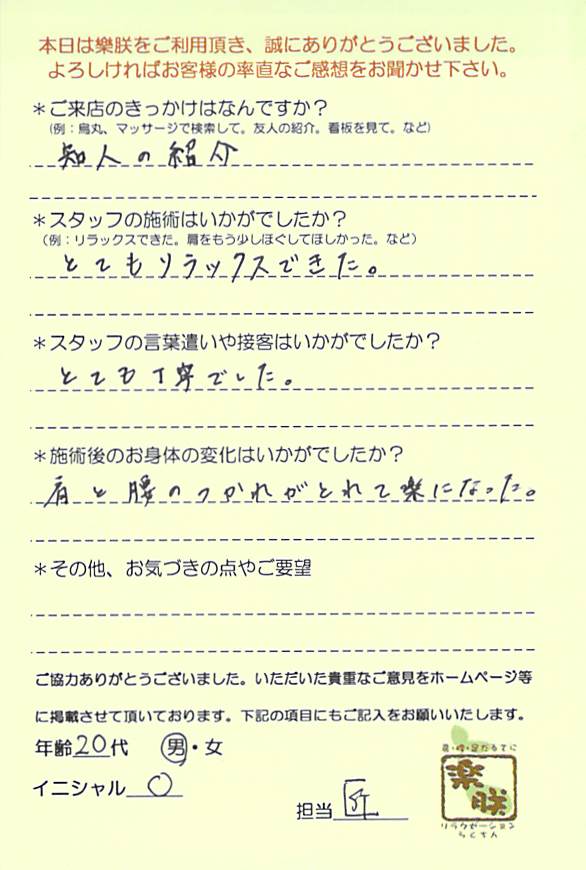 本日は樂朕をご利用頂き、誠にありがとうございました。
よろしければお客様の率直なご感想をお聞かせ下さい。
＊ご来店のきっかけはなんですか？
（例：烏丸、マッサージで検索して。友人の紹介。看板を見て。など）
知人の紹介
＊スタッフの施術はいかがでしたか？
（例：リラックスできた。肩をもう少しほぐしてほしかった。など）
とてもリラックスできた。
＊スタッフの言葉遣いや接客はいかがでしたか？
とても丁寧でした。
＊施術後のお身体の変化はいかがでしたか？
肩と腰のつかれがとれて楽になった。
＊その他、お気づきの点やご要望
ご協力ありがとうございました。いただいた貴重なご意見をホームページ等
に掲載させて頂いております。下記の項目にもご記入をお願いいたします。
年齢20代 男・女
イニシャル O
担当 匠
肩・腰・足だるてに
楽朕
リラクゼーション
らくちん